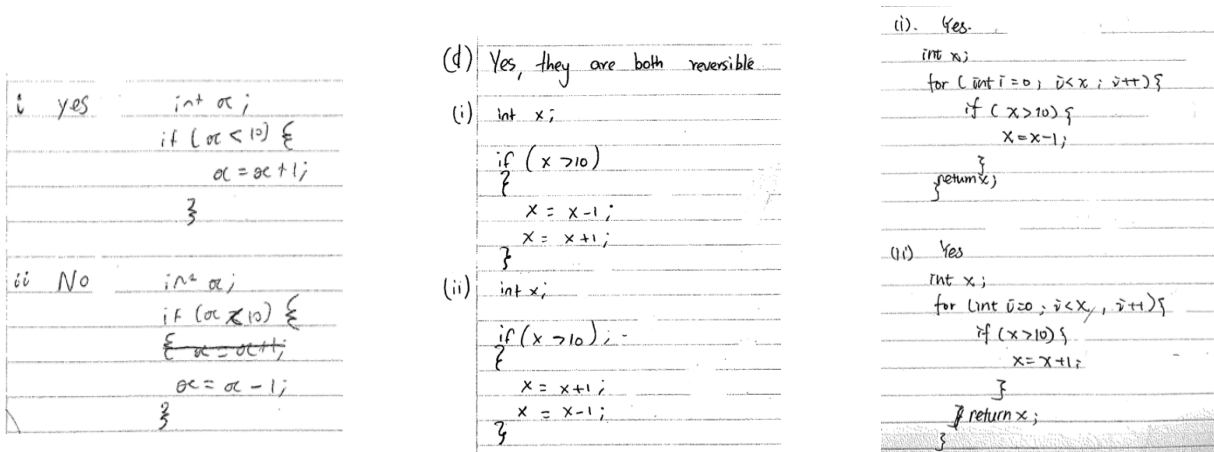 i yes int x;
if (x < 10) {
x = x+1;
}
ii No int x;
if (x < 10) {
{ x = x+1;
x = x - 1;
}
(d) Yes, they are both reversible
(i) int x;
if (x >10)
{
x = x-1;
x = x+1;
}
(ii) int x;
if (x >10);
{
x = x+1;
x = x-1;
}
(i). Yes.
int x;
for (int i=0; i<x; i++){
if (x>10){
x=x-1;
}
}return x;
(ii) Yes
int x;
for (int i=0; i<x, i++){
if (x>10){
x=x+1;
}
} return x;
}